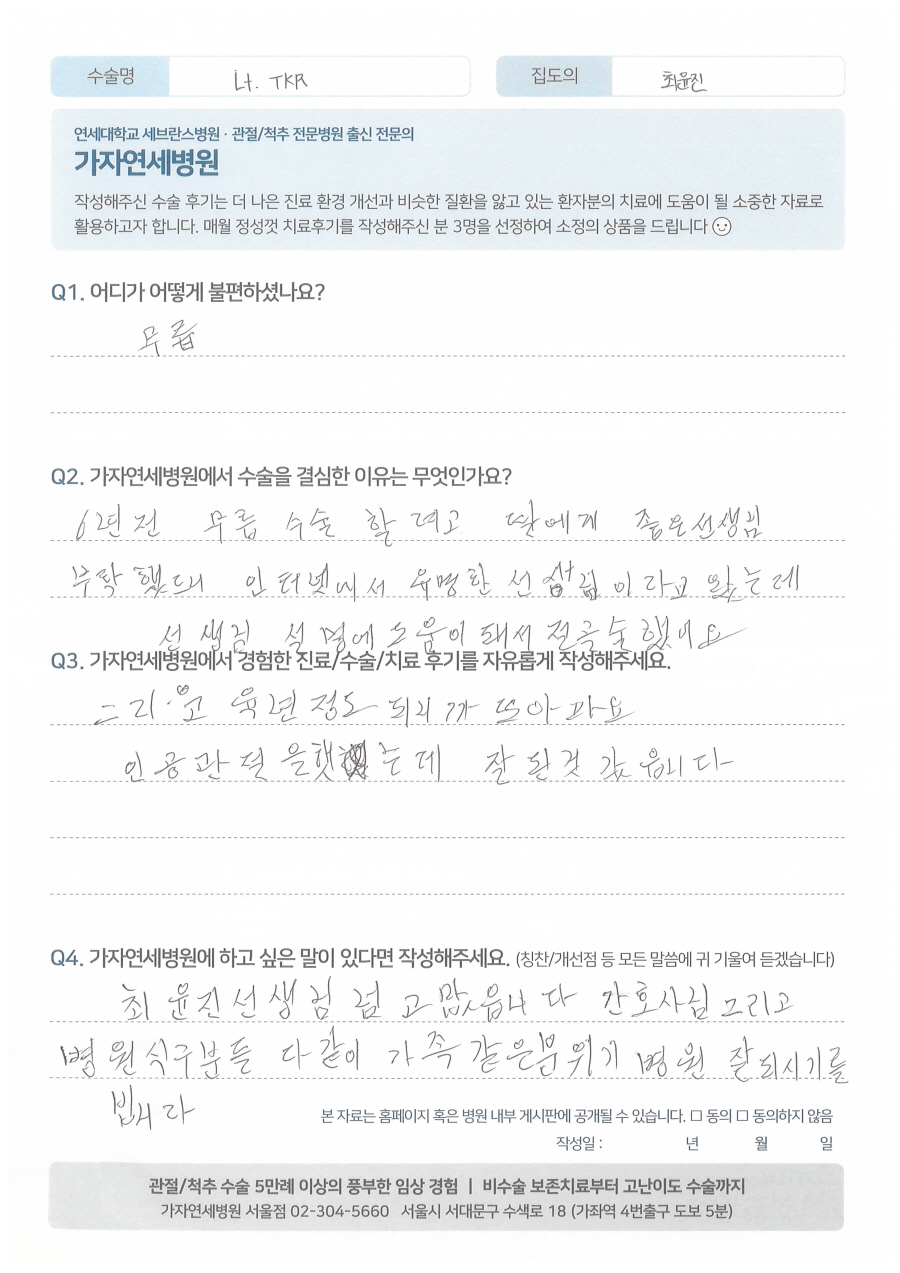 수술명 Lt. TKR 집도의 최윤진
연세대학교 세브란스병원 · 관절/척추 전문병원 출신 전문의
가자연세병원
작성해주신 수술 후기는 더 나은 진료 환경 개선과 비슷한 질환을 앓고 있는 환자분의 치료에 도움이 될 소중한 자료로
활용하고자 합니다. 매월 정성껏 치료후기를 작성해주신 분 3명을 선정하여 소정의 상품을 드립니다
Q1. 어디가 어떻게 불편하셨나요?
무릎
Q2. 가자연세병원에서 수술을 결심한 이유는 무엇인가요?
6년전 무릎 수술 할려고 딸에게 좋은선생님
부탁했드니 인터넷에서 유명한 선생님이라고 왔는데
선생님 설명에 도움이 돼서 결국술했어요
Q3. 가자연세병원에서 경험한 진료/수술/치료 후기를 자유롭게 작성해주세요.
그리고 육년정도 되니까 또아파요
인공관절을했는데 잘된것 같읍니다
Q4. 가자연세병원에 하고 싶은 말이 있다면 작성해주세요. (칭찬/개선점 등 모든 말씀에 귀 기울여 듣겠습니다)
최윤진선생님 고맙읍니다 간호사님 그리고
병원식구분들 다같이 가족같은분위기 병원 잘되시기를
빕니다
본 자료는 홈페이지 혹은 병원 내부 게시판에 공개될 수 있습니다. □ 동의 □ 동의하지 않음
작성일 : 년 월 일
관절/척추 수술 5만례 이상의 풍부한 임상 경험 | 비수술 보존치료부터 고난이도 수술까지
가자연세병원 서울점 02-304-5660 서울시 서대문구 수색로 18 (가좌역 4번출구 도보 5분)